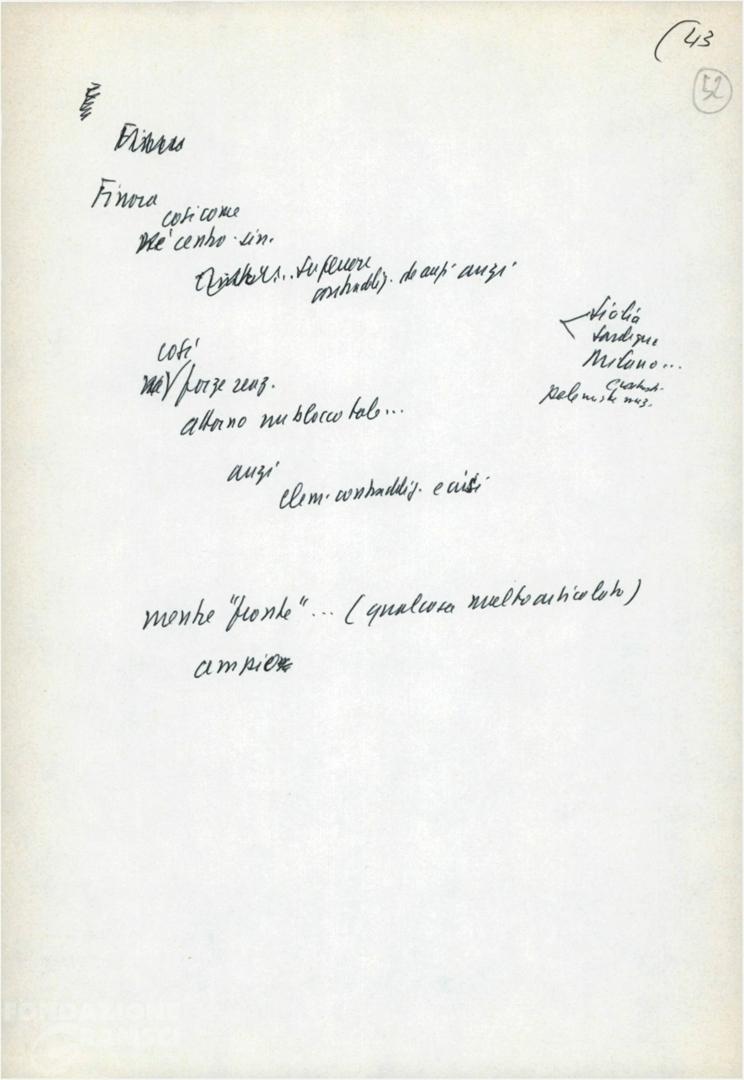 (43
52
Finora
così come
Né centro-sin.
superare
contraddiz. de anzi anzi
Sicilia
Sardegna
Milano...
polemiche
così
forze reaz.
attorno un blocco tale...
anzi
elem. contraddiz. e crisi
mentre "fronte"... (qualcosa molto articolato)
ampio
FONDAZIONE
GRAMSCI